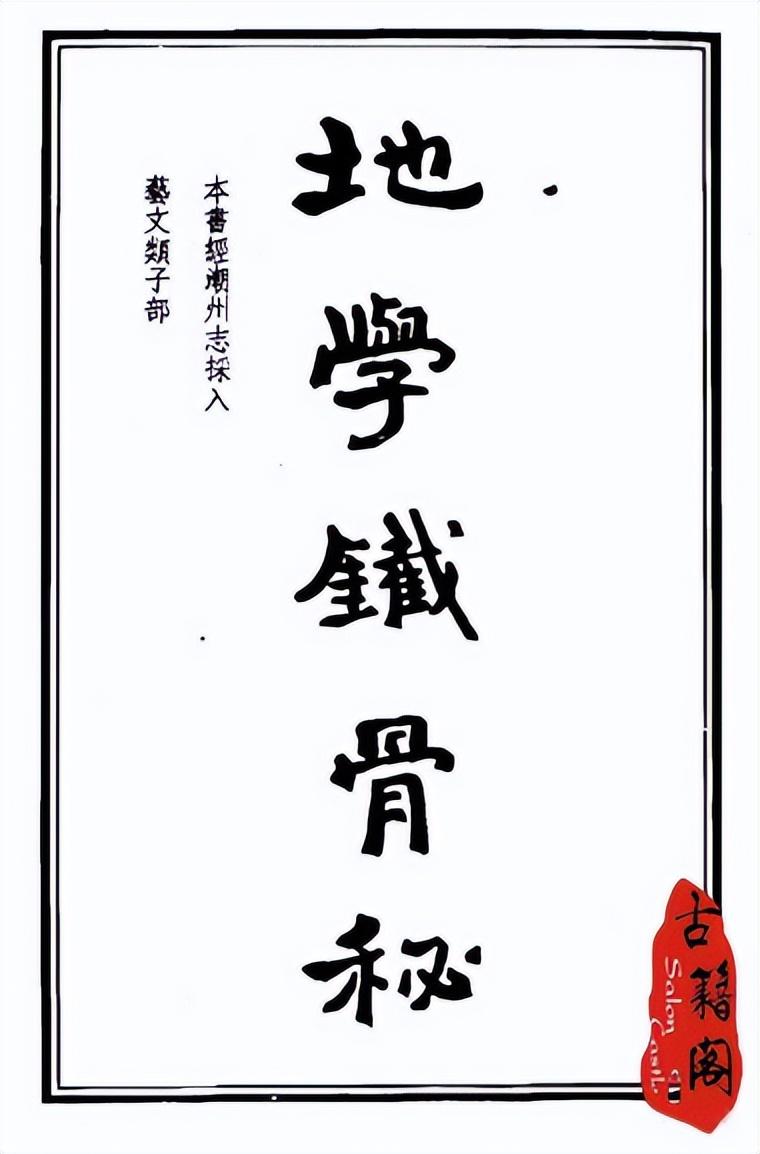 地學鐵骨秘
本書經潮州志採入
藝文類子部
古籍阁
Salon